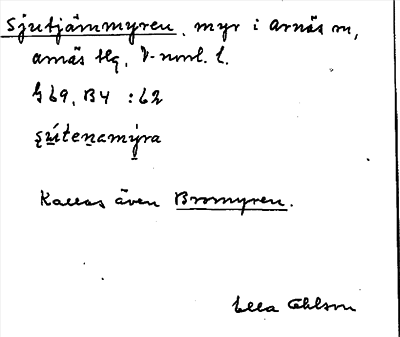 Sjutjärnmyren, myr i Arnäs sn,
Arnäs tlg, V-norrl. l.
G 69, B4 : 62
Kallas även Bromyren.
Ella Ohlson